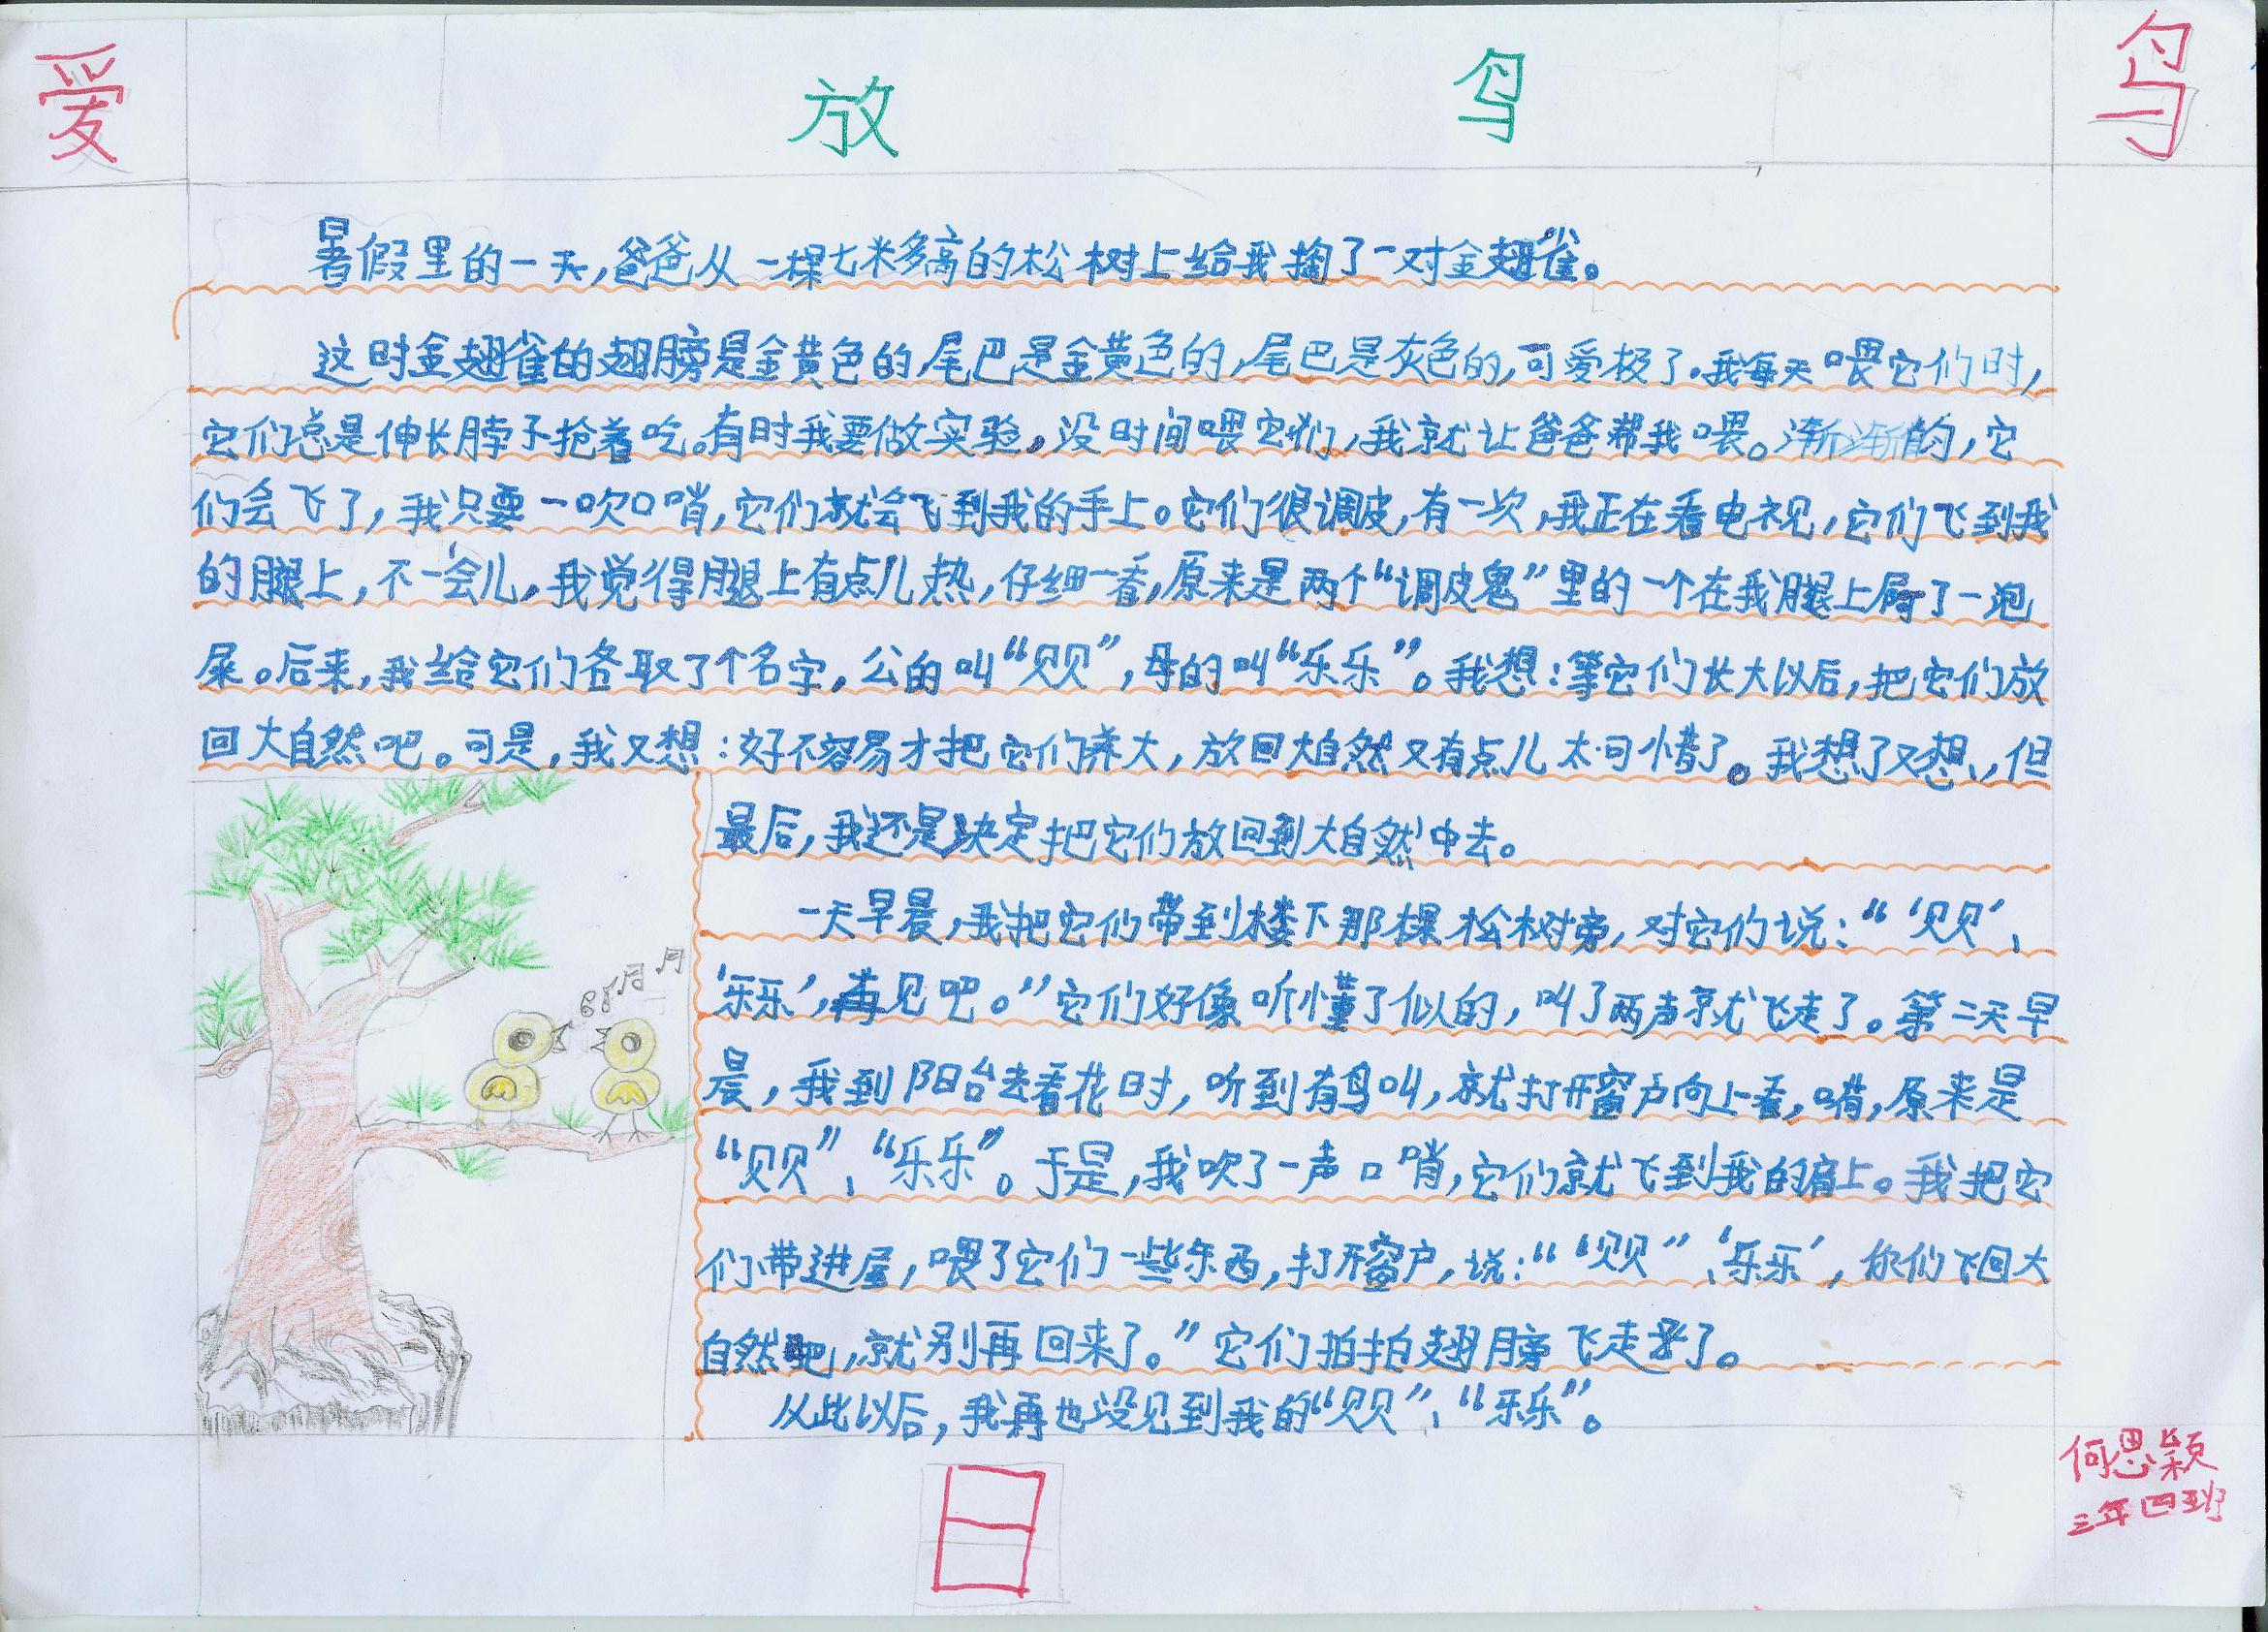 爱 放 鸟 鸟
暑假里的一天,爸爸从一棵七米多高的松树上给我掏了一对金翅雀。
这时金翅雀的翅膀是金黄色的,尾巴是金黄色的,尾巴是灰色的,可爱极了。我每天喂它们时,
它们总是伸长脖子抢着吃。有时我要做实验。没时间喂它们,我就让爸爸帮我喂。渐渐的,它
们会飞了,我只要一吹口哨,它们就会飞到我的手上。它们很调皮,有一次,我正在看电视,它们飞到我
的腿上,不一会儿,我觉得腿上有点儿热,仔细一看,原来是两个“调皮鬼”里的一个在我腿上屙了一泡
屎。后来,我给它们各取了个名字,公的叫“贝贝”,母的叫“乐乐”。我想:等它们长大以后,把它们放
回大自然吧。可是,我又想:好不容易才把它们养大,放回大自然又有点儿太可惜了。我想了又想、,但
最后,我还是决定把它们放回到大自然中去。
一天早晨,我把它们带到楼下那棵松树旁,对它们说:“‘贝贝’、
‘乐乐’,再见吧。”它们好像听懂了似的,叫了两声就飞走了。第二天早
晨,我到阳台去看花时,听到有鸟叫,就打开窗户向上看,嗬,原来是
“贝贝”、“乐乐”。于是,我吹了一声口哨,它们就飞到我的肩上。我把它
们带进屋,喂了它们一些东西,打开窗户,说:“‘贝贝”、‘乐乐’,你们飞回大
自然吧,就别再回来了。”它们拍拍翅膀飞走了。
从此以后,我再也没见到我的“贝贝”、“乐乐”。
日
何恩颖
三年四班